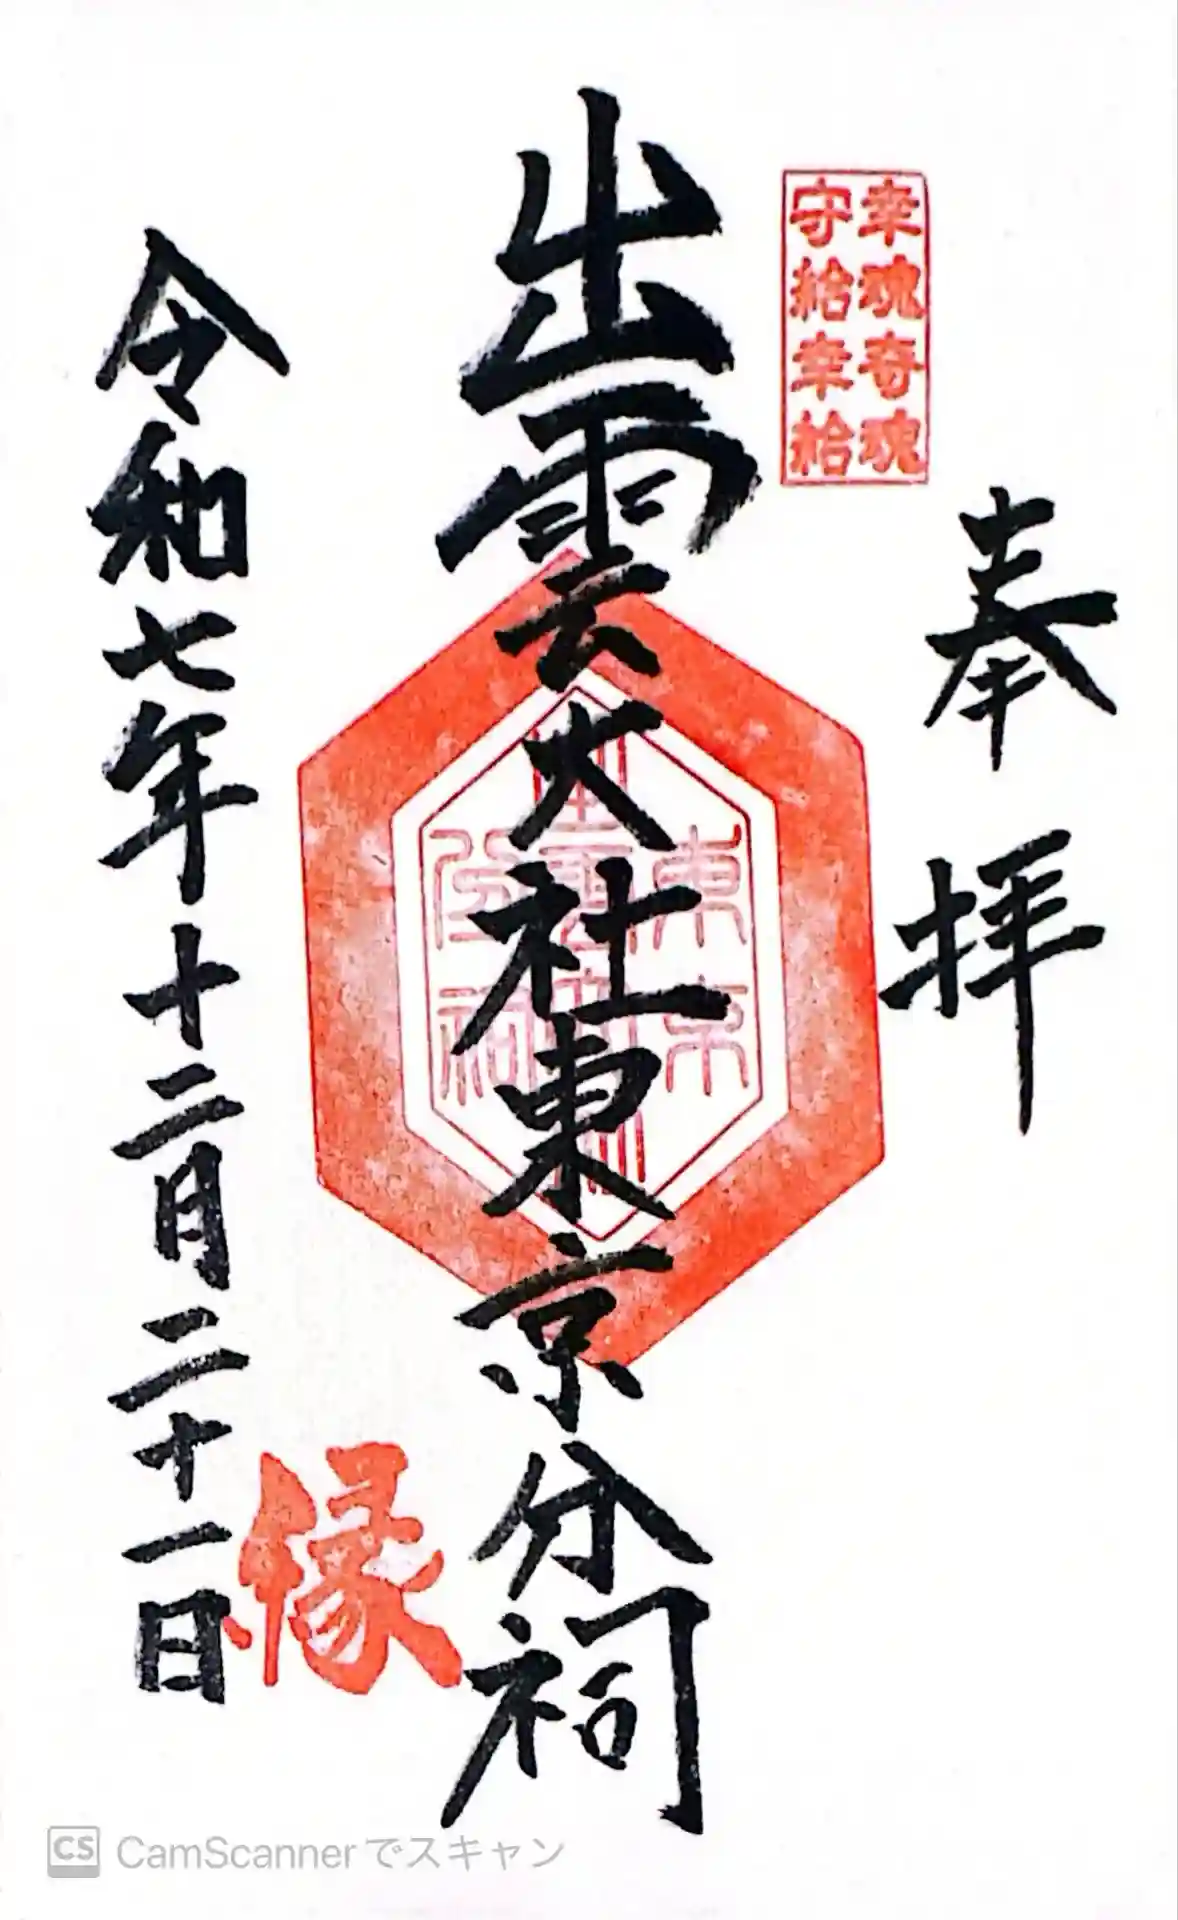 奉拝
幸魂奇魂
守給幸給
出雲大社東京分祠
東京
出雲大社
分祠
縁
令和七年十二月二十一日
CS CamScannerでスキャン